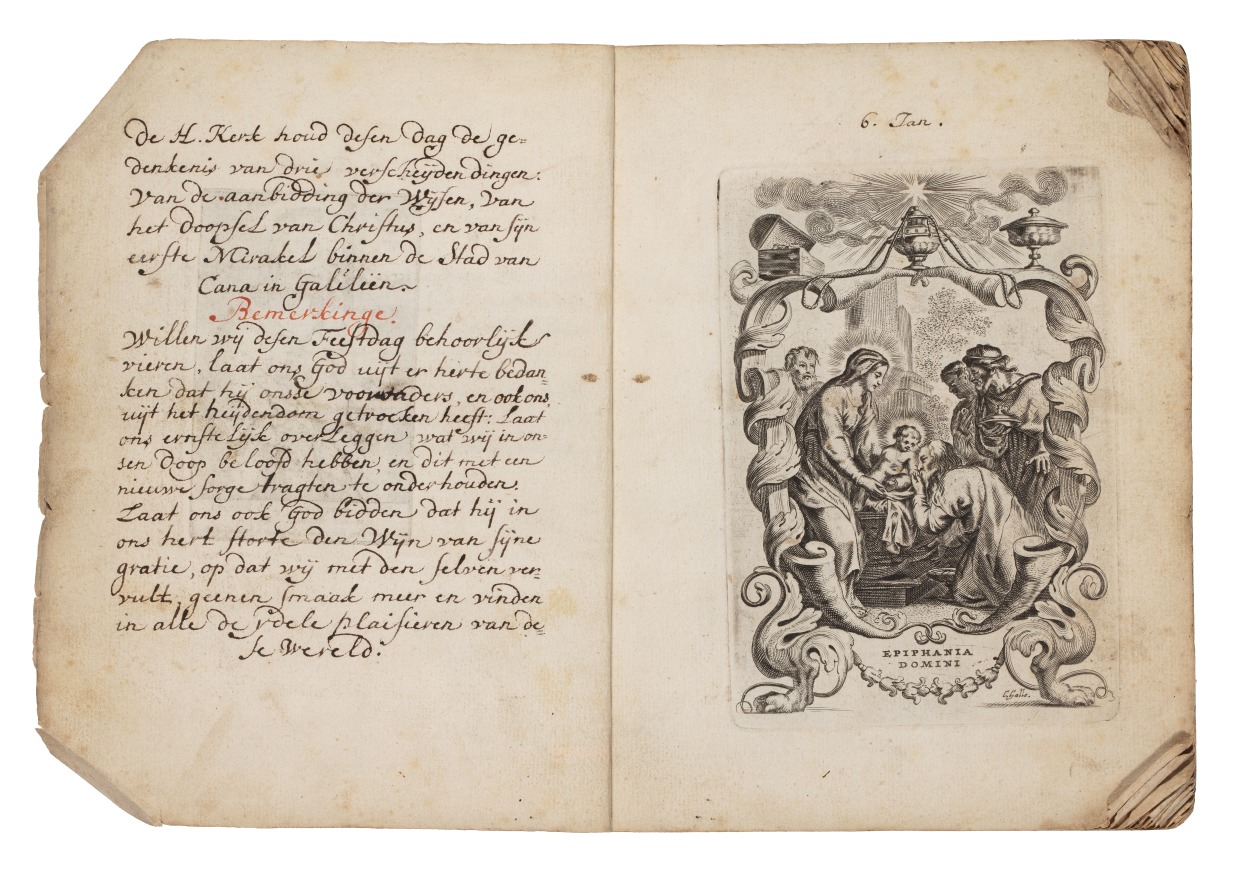 De H. Kerk houd desen dag de ge=
denkenis van drie verscheijden dingen:
Van de aanbidding der Wijsen, van
het doopsel van Christus, en van sijn
eerste Mirakel binnen de Stad van
Cana in Galiléen.
Bemerkinge.
Willen wij desen Feestdag behoorlijk
vieren, laat ons God uijt er herte bedan=
ken dat hij onsse voorvaders, en ook ons
uijt het heijdendom getrocken heeft: Laat
ons ernstelijk overleggen wat wij in on=
sen doop beloofd hebben, en dit met een
nieuwe sorge tragten te onderhouden.
Laat ons ook God bidden dat hij in
ons hert storte den Wijn van sijne
gratie, op dat wij met den selven ver=
vult, geenen smaak meer en vinden
in alle de ijdele plaisieren van de=
se Wereld.
6. Jan.
EPIPHANIA
DOMINI
C. Galle.